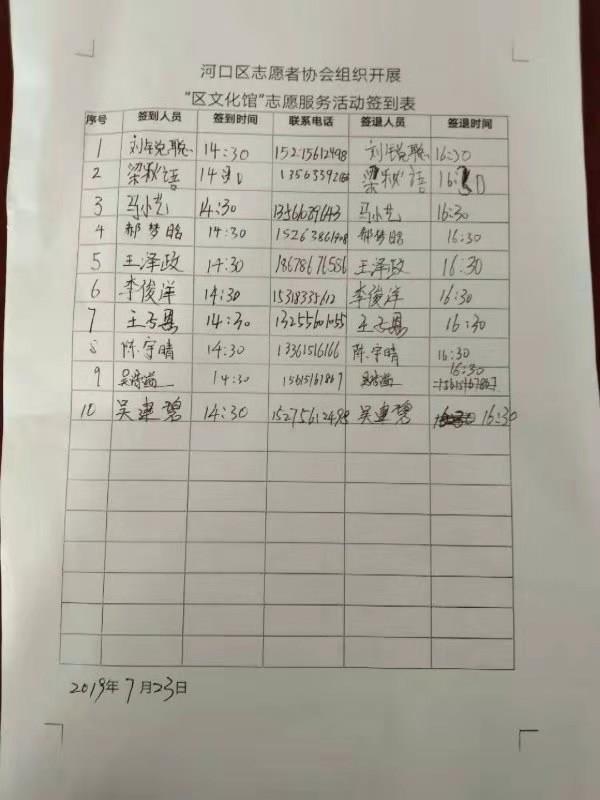 河口区志愿者协会组织开展
“区文化馆”志愿服务活动签到表
序号 签到人员 签到时间 联系电话 签退人员 签退时间
1 刘锐聪 14:30 15215612498 刘锐聪 16:30
2 梁秋语 梁秋语
3 马小艺 14:30 马小艺 16:30
4 郝梦晗 14:30 郝梦晗 16:30
5 王泽政 14:30 18678676586 王泽政 16:30
6 李俊洋 14:30 15318335612 李俊洋 16:30
7 14:30 13255601055 16:30
8 陈宇晴 14:30 13361516166 陈宇晴 16:30
9 14:30 15615161867 16:30
10 吴建碧 14:30 15275612498 吴建碧 16:30
2019年7月23日